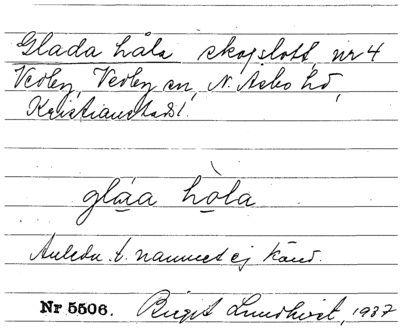 Glada håla skogslott, nr 4
Vedby, Vedby sn, N. Åsbo hd,
Kristianstads l.
gláa hòla
Anledn. t. namnet ej känd.
Nr 5506. Birgit Lundkvist, 1937